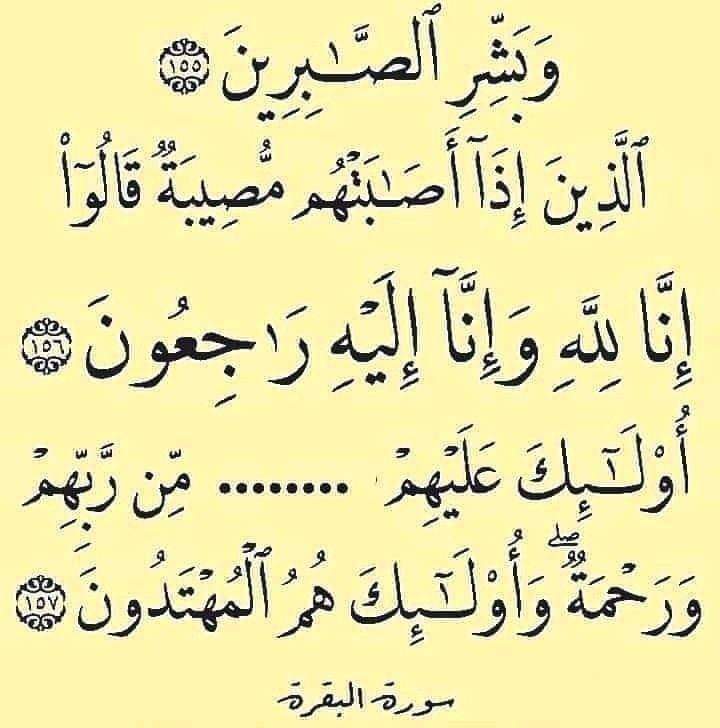 وَبَشِّرِ ٱلصَّـٰبِرِينَ ١٥٥
ٱلَّذِينَ إِذَآ أَصَـٰبَتْهُم مُّصِيبَةٌ قَالُوٓا۟
إِنَّا لِلَّهِ وَإِنَّآ إِلَيْهِ رَٰجِعُونَ ١٥٦
أُو۟لَـٰٓئِكَ عَلَيْهِمْ ......... مِّن رَّبِّهِمْ
وَرَحْمَةٌ ۖ وَأُو۟لَـٰٓئِكَ هُمُ ٱلْمُهْتَدُونَ ١٥٧
سورة البقرة